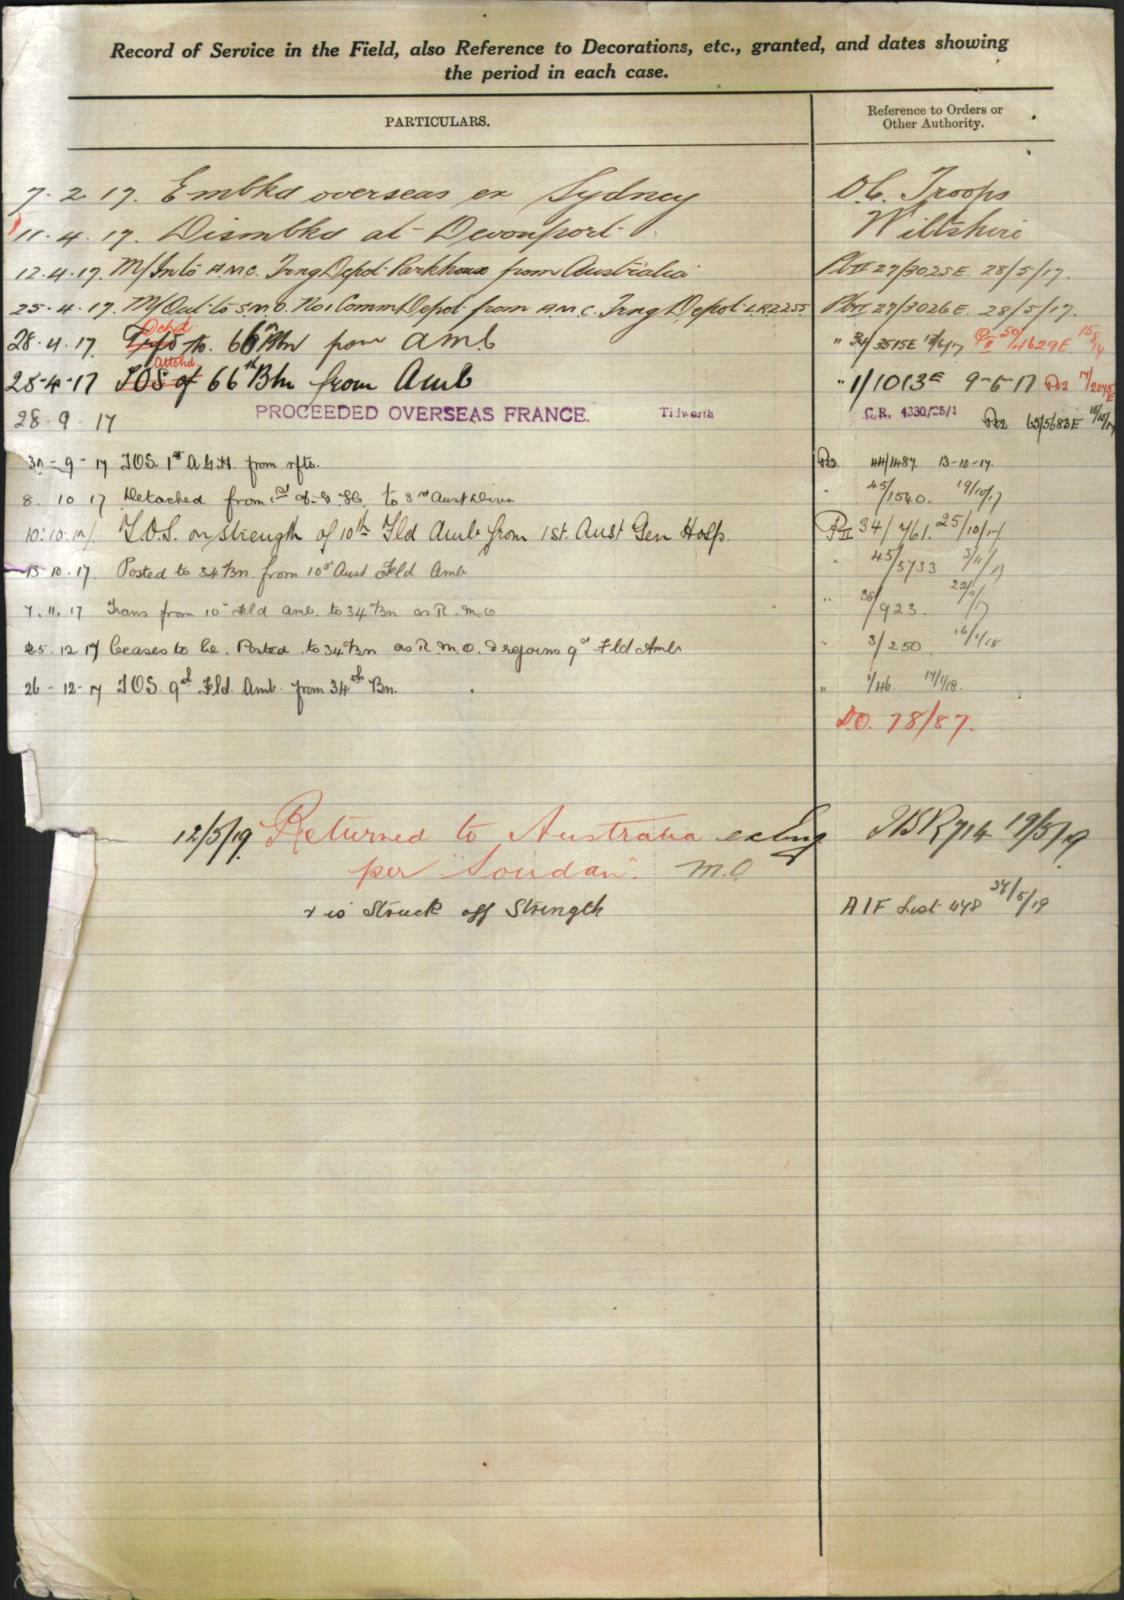 Record of Service in the Field, also Reference to Decorations, etc., granted, and dates showing
the period in each case.
PARTICULARS.
Reference to Orders or
Other Authority.
7. 2. 17. Embkd overseas ex Sydney O.C. Troops
11. 4. 17. Dismbkd at Devonport. Wiltshire
12.4.17. M/In to A.M.C. Trng Depot Parkhouse from Australia 27/3025E. 28/5/17.
25.4.17. M/Out to S.M.O. No1 Comm Depot from A.M.C. Trng Depot LR2255 27/3026E. 28/5/17.
Dchd
28.4.17. to. 66 Bn from Amb " 34/3515E 50/4629E
Attchd
28-4-17 TOS of 66th Btn from Amb " 1/1013E 9-6-17
28.9.17 PROCEEDED OVERSEAS FRANCE. Tidworth C.R. 4330/25/1 65/5683E
30-9-17 TOS. 1st A.G.H. from rfts. 44/1487. 13-10-17.
8. 10 17 Detached from 1st A.G.H. to 3rd Aust Divn " 45/1540. 19/10/17
10:10.17 T.O.S. on strength of 10th Fld Amb from 1st. Aust Gen Hosp. 34/761. 25/10/17
15.10.17. Posted to 34 Bn. from 10th Aust Fld Amb " 45/5733 3/11/17
7. 11. 17 Trans from 10th Fld amb. to 34th Bn as R.M.O " 38/923.
25. 12 17 Ceases to be Posted to 34 Bn as R.M.O. & rejoins 9th Fld Amb " 3/250 16/1/18
26-12-17 TOS. 9th Fld. Amb. from 34th Bn. " 1/46. 17/1/18.
D.O. 78/87.
12/5/19 Returned to Australia ex Eng 19/5/19
per "Soudan". M.O
& is Struck off Strength AIF List 448 /5/19